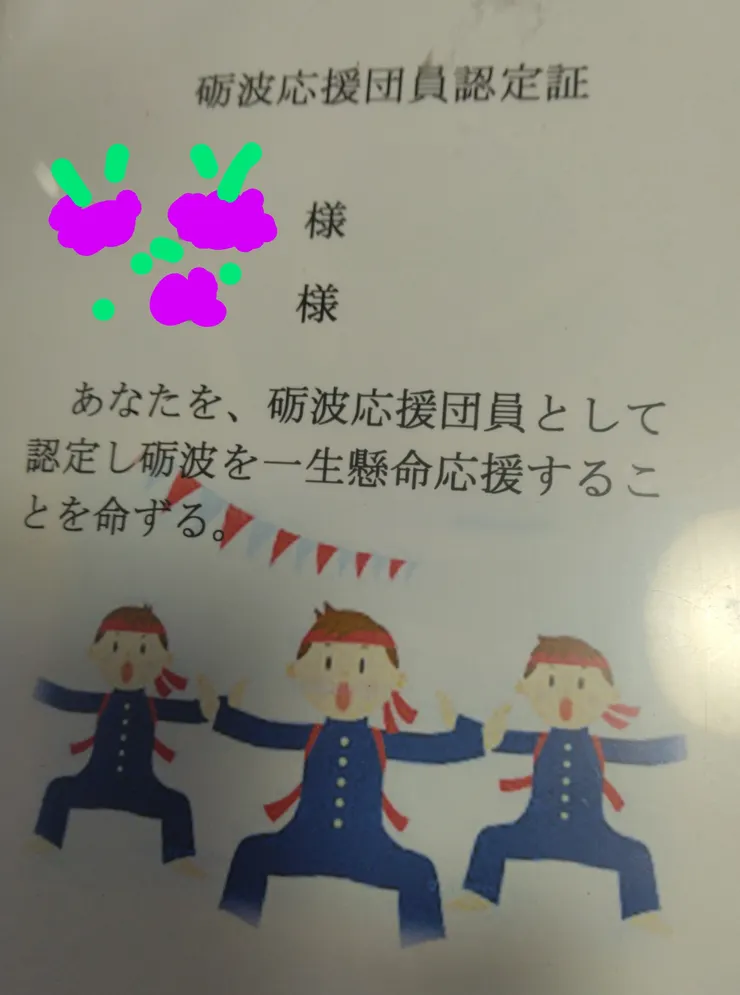 砺波応援団員認定証
様
様
あなたを、砺波応援団員として
認定し砺波を一生懸命応援するこ
とを命ずる。